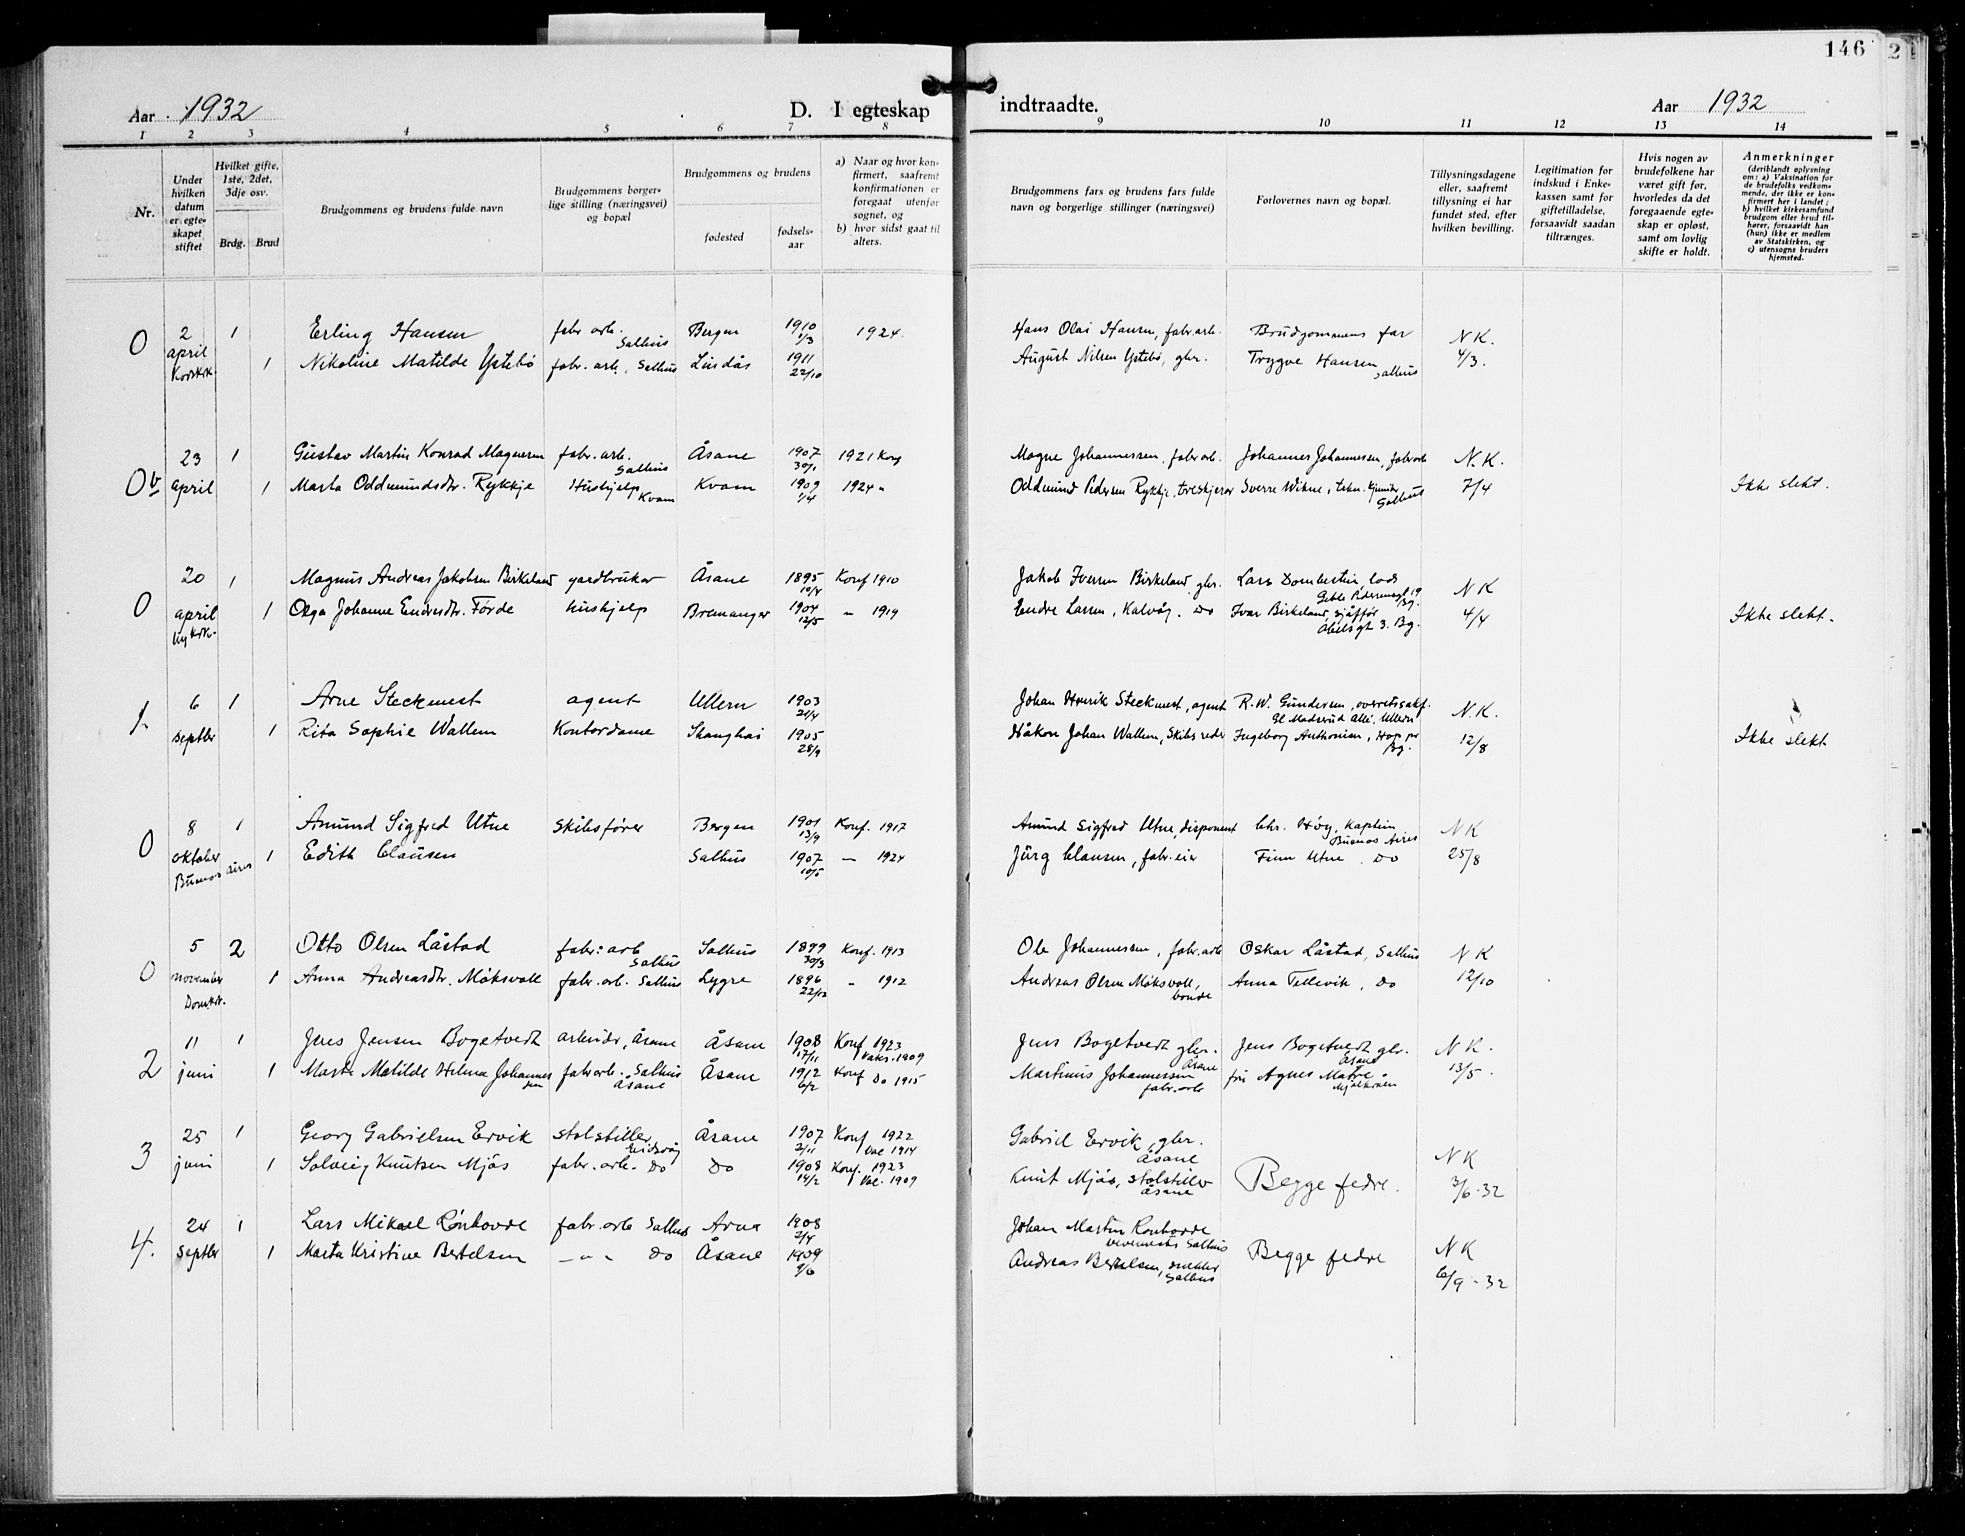 146
2
Aar 1932
D. I egteskap indtraadte.
Aar 1932
1 2 3 4 5 6 7 8 9 10 11 12 13 14
Nr.
Under hvilken datum er egteskapet stiftet
Hvilket gifte, 1ste, 2det, 3dje osv.
Brdg. Brud
Brudgommens og brudens fulde navn
Brudgommens borgerlige stilling (næringsvei) og bopæl
Brudgommens og brudens
fødested
fødselsaar
a) Naar og hvor konfirmert, saafremt konfirmationen er foregaat utenfor sognet, og
b) hvor sidst gaat til alters.
Brudgommens fars og brudens fars fulde navn og borgerlige stillinger (næringsvei)
Forlovernes navn og bopæl.
Tillysningsdagene eller, saafremt tillysning ei har fundet sted, efter hvilken bevilling.
Legitimation for indskud i Enkekassen samt for giftetilladelse, forsaavidt saadan tiltrænges.
Hvis nogen av brudefolkene har været gift før, hvorledes da det foregaaende egteskap er opløst, samt om lovlig skifte er holdt.
Anmerkninger (deriblandt oplysning om: a) Vaksination for de brudefolks vedkommende, der ikke er konfirmert her i landet; b) hvilket kirkesamfund brudgom eller brud tilhører, forsaavidt han (hun) ikke er medlem av Statskirken, og c) utensogns bruders hjemsted.
0 2 april Korskk. 1 Erling Hansen fabr. arb. Salhus Bergen 1910 1/3 1924. Hans Olai Hansen, fabr. arb. Brudgommens far N K. 4/3.
1 Nikoline Matilde Ystebø fabr. arb. Salhus Lindås 1911 22/10 August Nilsen Ystebø, gbr. Trygve Hansen Salhus
0 b 23 april 1 Gustav Martin Konrad Magnesen fabr. arb. Salhus Åsane 1907 30/1 1921 Konf Magne Johannessen, fabr. arb. Johannes Johannesen, fabr arb N. K. 7/4
1 Marta Oddmundsdtr. Rykkje Hushjelp Kvam Kvam 1909 1/4 1924 " Oddmund Pedersen Rykkje, treskjerer Sverre Wikne, tekn. kjemiker Salhus Ikke slekt.
0 20 april Nykrk. 1 Magnus Andreas Jakobsen Birkeland gardbruker Åsane 1895 10/4 Konf 1910 Jakob Iversen Birkeland, gbr. Lars Dombestein, lods Geble Pedersensgt 19 Bg. N K 4/4
1 Olga Johanne Endresdtr. Förde hushjelp Bremanger 1904 12/5 " 1919 Endre Larsen, Kalvåg. Do Ivar Birkeland, sjåffør Abelsgt 3. Bg. Ikke slekt.
1. 6 septbr 1 Arne Steckmest agent Ullern 1903 21/4 Johan Henrik Steckmest, agent R. W. Gundersen, overretssakf. Gl Maderud Allé, Ullern N. K. 12/8
1 Rita Sophie Wallem Kontordame Shanghai 1905 28/9 Håkon Johan Wallem, Skibsreder Ingeborg Anthonisen, Hop pr Bg. Ikke slekt
0 8 oktober Buenos Aires 1 Amund Sigfred Utne Skibsfører Bergen 1901 13/9 Konf. 1917 Amund Sigfred Utne, disponent Chr. Høy, Kaptein Buenos Aires N K 25/8
1 Edith Clausen Salhus 1907 10/5 — 1924 Jürg Clausen, fabr. eier Finn Utne. Do
0 5 november Domkk. 2 Otto Olsen Låstad fabr: arb Salhus Salhus 1899 30/3 Konf. 1913 Ole Johannessen, fabr. arb Oskar Låstad, Salhus N K 12/10
1 Anna Andreasdtr. Moksvoll fabr. arb. Salhus Lygre 1896 22/12 " 1912 Andreas Olsen Moksvoll, bonde Anna Tellevik, Do
2 11 juni 1 Jens Jensen Bogetvedt arbeider, Åsane Åsane 1908 17/11 Konf 1923 Vaks. 1909 Jens Bogetvedt gbr. Åsane Jens Bogetvedt gbr. Åsane N K. 13/5.
1 Marta Matilde Helma Johannessen fabr arb. Salhus Åsane Åsane 1912 6/2 Konf Do 1915 Martinus Johannessen fabr. arb fru Agnes Matre Mjølkråen
3 25 juni 1 Georg Gabrielsen Ervik stolstiller Eidsvåg Åsane 1907 2/11 Konf 1922 Vac 1914 Gabriel Ervik, gbr. Åsane Begge fedre. N K 3/6-32
1 Solveig Knutsen Mjøs fabr. arb. Do Do 1908 14/2 Konf. 1923 Vac. 1909 Knut Mjøs, stolstiller Åsane
4. 24 septbr 1 Lars Mikael Rönhovde fabr. arb Salhus Arna 1908 2/4 Johan Martin Ronhovde vevemester Salhus Begge fedre N K 6/9-32
1 Marta Kristine Bertelsen — " — Do Åsane 1909 9/6 Andreas Bertelsen, snekker Salhus